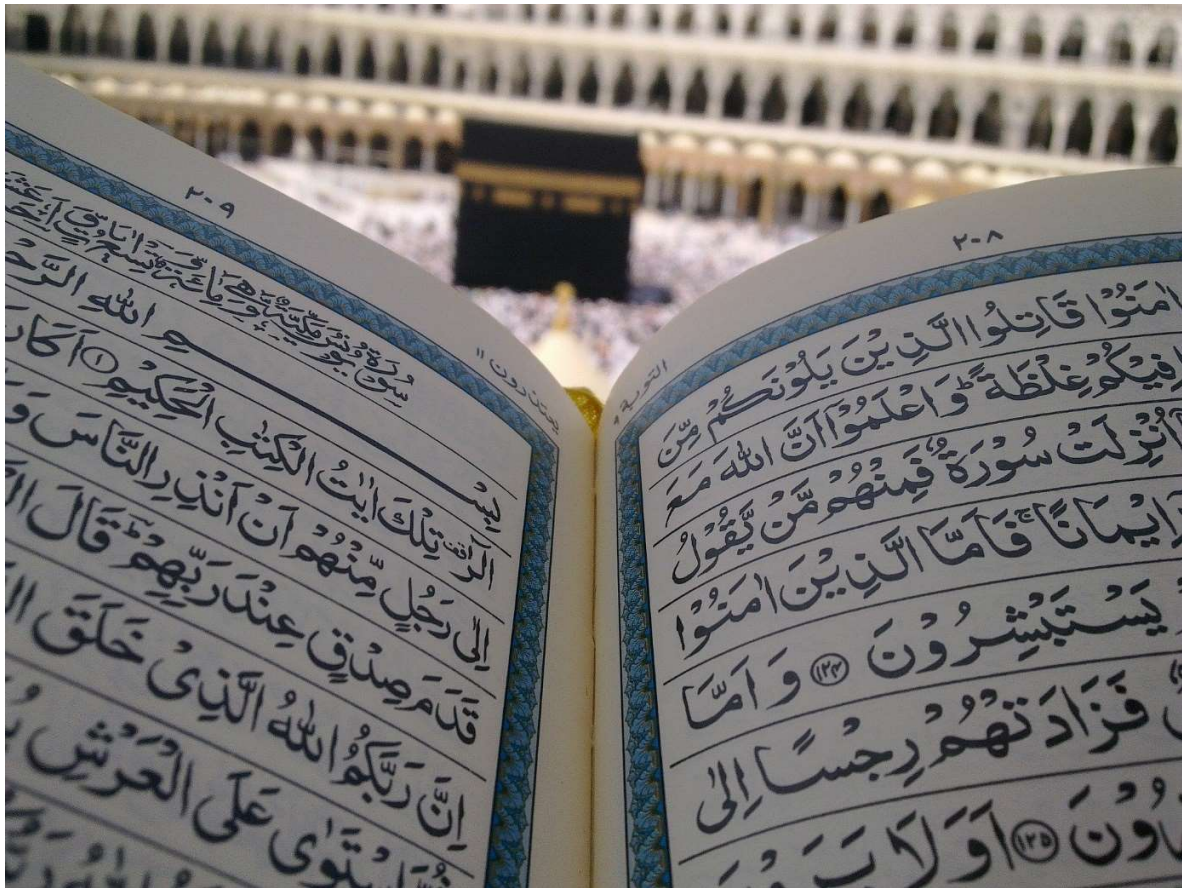 ٢٠٨
التوبة ٩
اٰمَنُوْا قَاتِلُوا الَّذِيْنَ يَلُوْنَكُمْ مِّنَ
فِيْكُمْ غِلْظَةً ؕ وَاعْلَمُوْۤا اَنَّ اللّٰهَ مَعَ
اُنْزِلَتْ سُوْرَةٌ فَمِنْهُمْ مَّنْ يَّقُوْلُ
اِيْمَانًا ۚ فَاَمَّا الَّذِيْنَ اٰمَنُوْا
يَسْتَبْشِرُوْنَ ﴿١٢٤﴾ وَاَمَّا
فَزَادَتْهُمْ رِجْسًا اِلٰى
﴿١٢٥﴾ اَوَلَا
٢٠٩
يعتذرون ١١
سُوْرَةُ يُوْنُسَ مَكِّيَّةٌ وَّهِيَ مِائَةٌ وَّتِسْعُ اٰيَاتٍ
بِسْمِ اللّٰهِ
الٓرٰ ۟ تِلْكَ اٰيٰتُ الْكِتٰبِ الْحَكِيْمِ ﴿١﴾ اَكَانَ
اِلٰى رَجُلٍ مِّنْهُمْ اَنْ اَنْذِرِ النَّاسَ
قَدَمَ صِدْقٍ عِنْدَ رَبِّهِمْ ؕ قَالَ
اِنَّ رَبَّكُمُ اللّٰهُ الَّذِيْ خَلَقَ
اسْتَوٰى عَلَى الْعَرْشِ